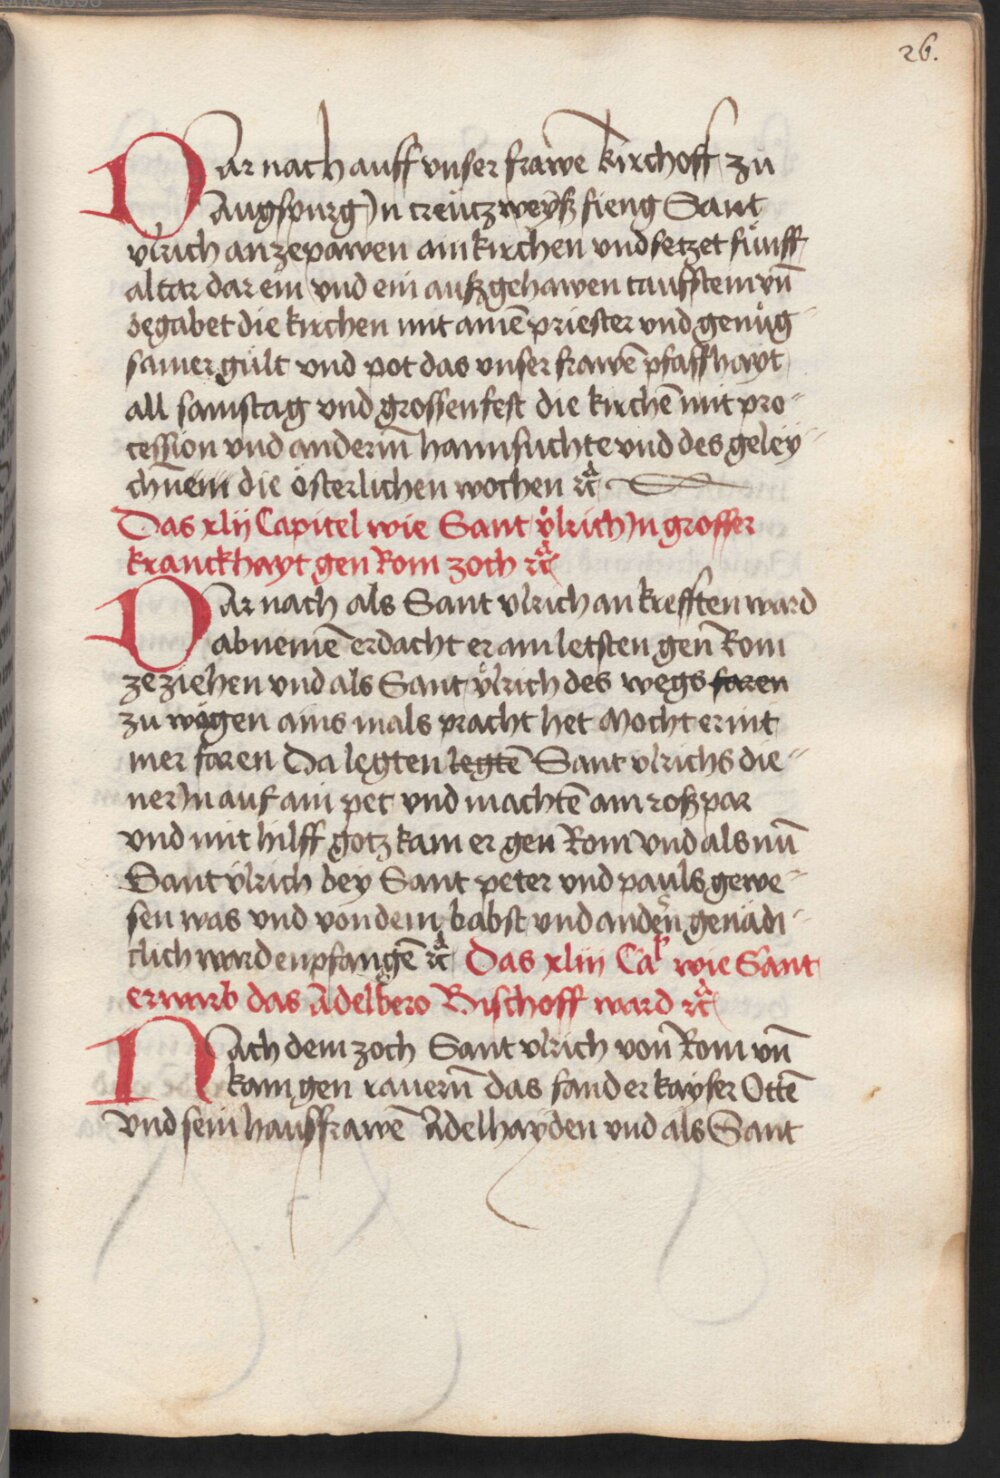 26.
Dar nach auff vnser frawe kirchoff zu
Augspurg Jn creutzweyß fieng Sant
vlrich an zepawen ain kirchen vnd setzet fünff
altar dar ein vnd ein außgehawen taufstein vn̄
begabet die kirchen mit ainē priester vnd genůg
samer gült vnd pot das vnser frawē pfaffhayt
all samstag vnd grossen fest die kirchē mit pro-
cession vnd anderm̄ haimsuchte vnd des geley-
chn̄ ein die österlichen wochen ⁊c̄
Das xlij Capitel wie Sant vͦlrich Jn grosser
kranckhayt gen Rom zoch ⁊c̄
Dar nach als Sant vlrich an krefften ward
abnemē erdacht er am letsten gen Rom
zeziehen vnd als Sant vͦlrich des wegs faren
zu wögen ains mals pracht het Mocht er nit
mer faren Da legten legtē Sant vlrichs die-
ner Jn auf ain pet vnd machtē am roßpar
vnd mit hilff gotz kam er gen Rom Vnd als nū
Sant vlrich bey Sant peter vnd pauls gewe-
sen was vnd von dem babst vnd andern genädi-
clich ward enpfangē ⁊c̄ Das xliij Capˡ wie Sant
erwarb das Adelbero Bischoff ward ⁊c̄
Nach dem zoch Sant vlrich von Rom vn̄
kam gen rauern̄ das fand er kayser Ottē
Vnd sein hausfrawē Adelhayden vnd als Sant